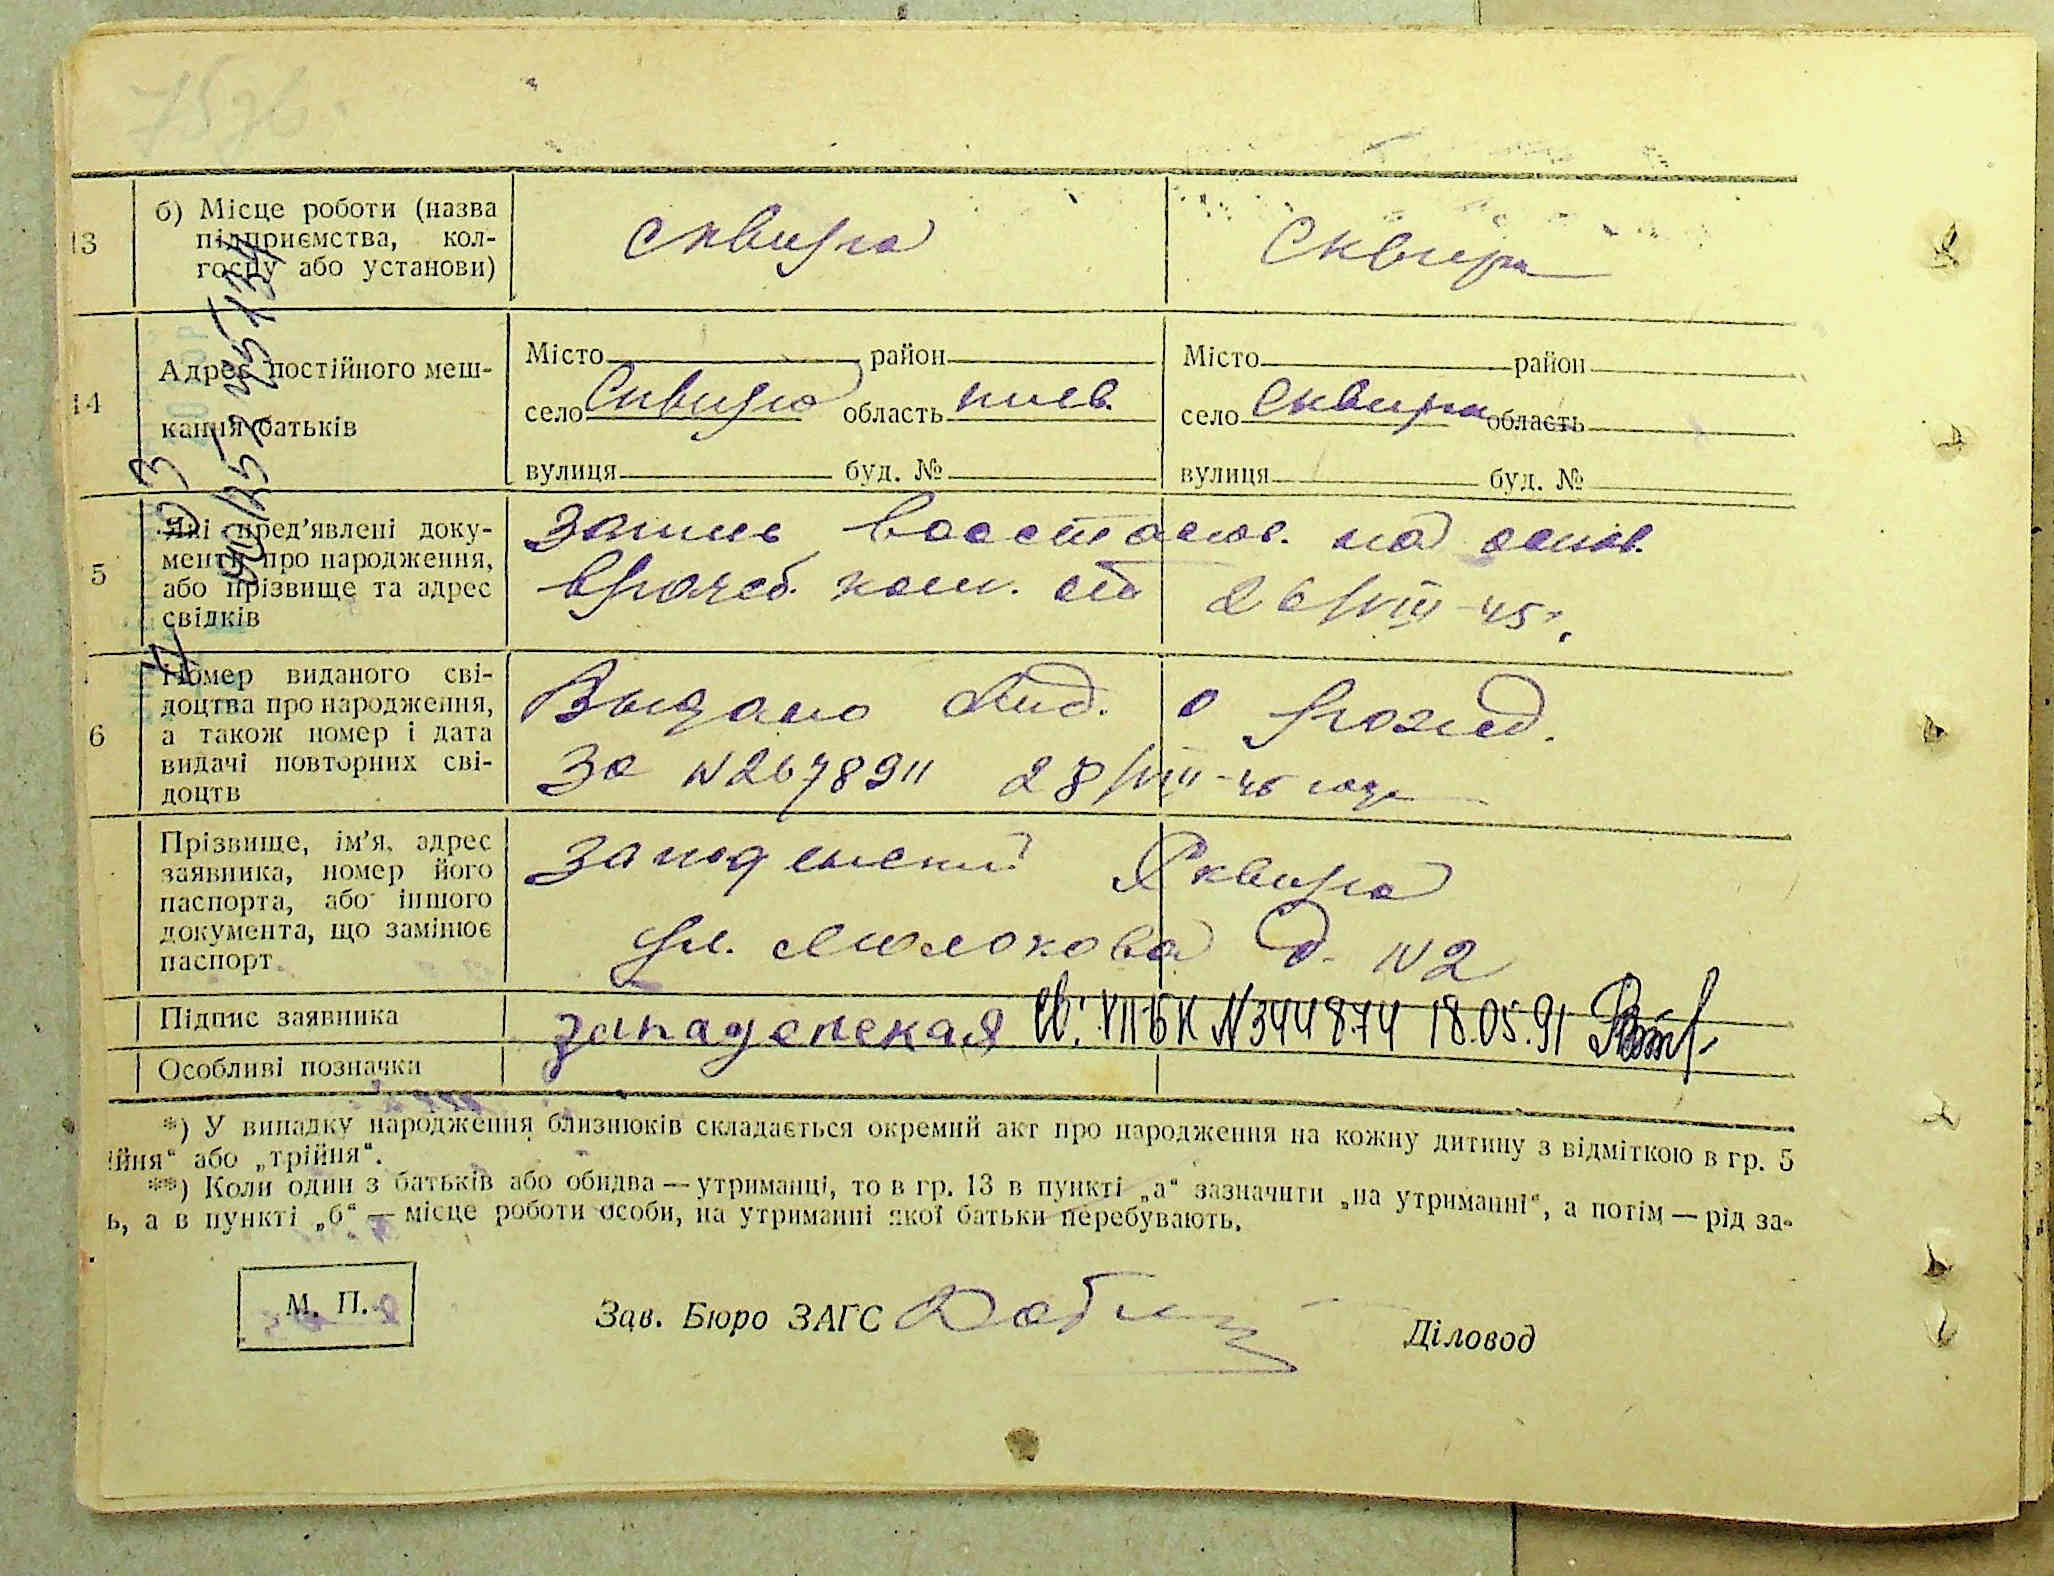 75
13
б) Місце роботи (назва
підприємства, кол-
госпу або установи)
Сквира
Сквира
14
Адрес постійного меш-
кання батьків
Місто район
село Сквира область киев.
вулиця буд. №
Місто район
село Сквира область
вулиця буд. №
5
Які пред’явлені доку-
менти про народження,
або прізвище та адрес
свідків
Запись восстанов. на основ.
врачеб. ком. от 26/VIII-45г.
6
Номер виданого сві-
доцтва про народження,
а також номер і дата
видачі повторних сві-
доцтв
Выдано свид. о рожд.
за N267891 28/VIII-45 года
Прізвище, ім’я, адрес
заявника, номер його
паспорта, або іншого
документа, що замінює
паспорт
Западенский Сквира
ул. Молокова д. N2
Підпис заявника
Западенская св. VIIБК N344874 18.05.91
Особливі позначки
*) У випадку народження близнюків складається окремий акт про народження на кожну дитину з відміткою в гр. 5
ійня“ або „трійня“.
**) Коли один з батьків або обидва — утриманці, то в гр. 13 в пункті „а“ зазначити „на утриманні“, а потім — рід за-
ь, а в пункті „б“ — місце роботи особи, на утриманні якої батьки перебувають.
М. П.
Зав. Бюро ЗАГС
Діловод